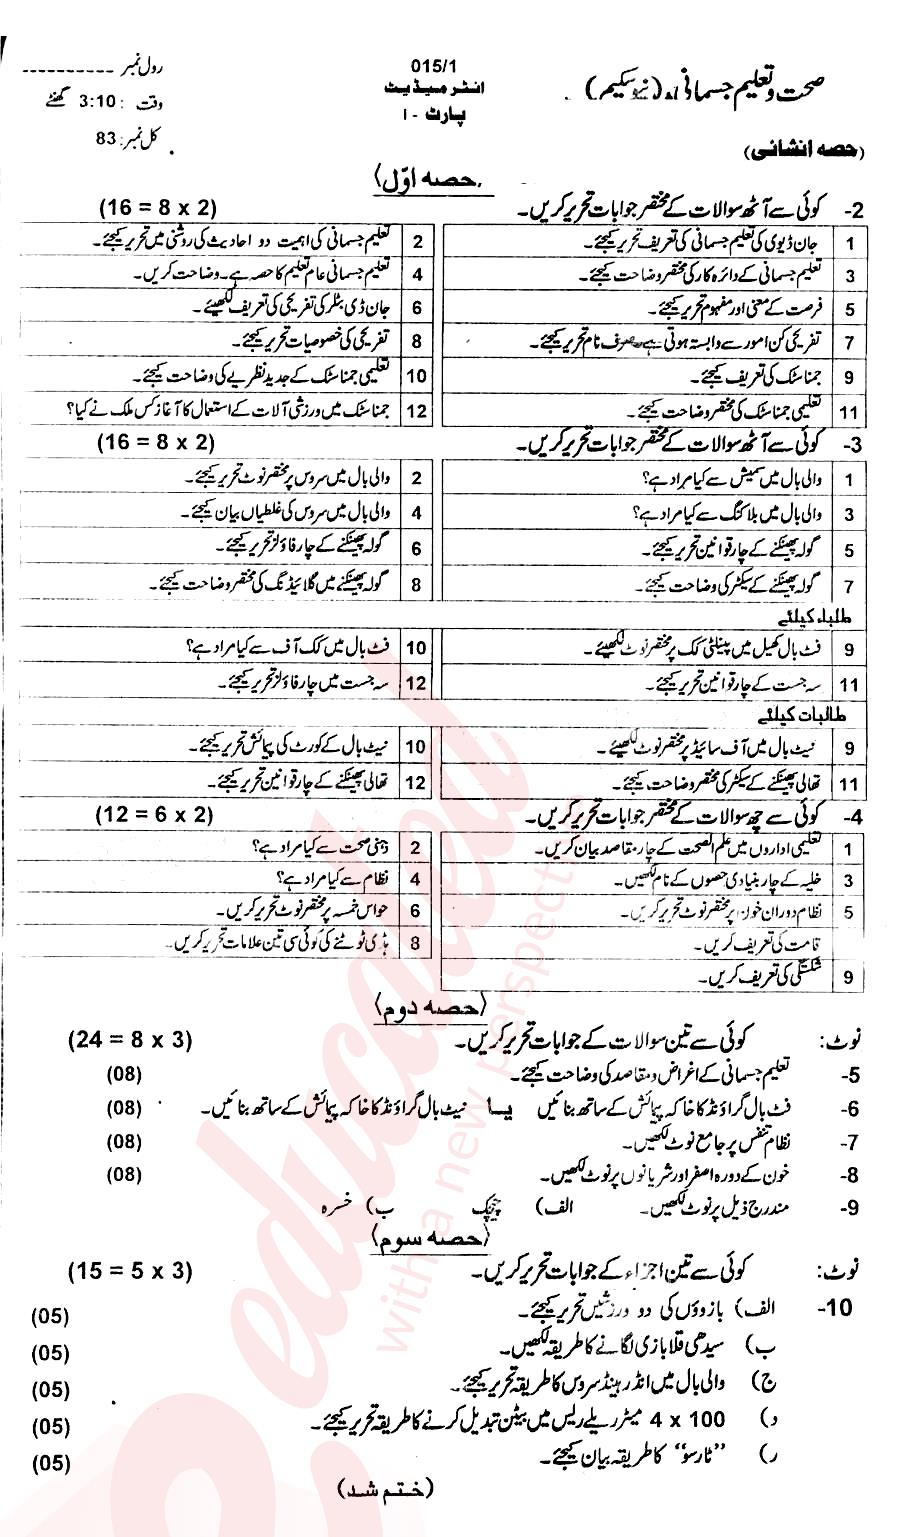 رول نمبر ----------
015/1
صحت و تعلیم جسمانی (نیو سکیم)
وقت : 3:10 گھنٹے
انٹرمیڈیٹ
کل نمبر: 83
پارٹ - I
(حصہ انشائی)
(حصہ اوّل)
2- کوئی سے آٹھ سوالات کے مختصر جوابات تحریر کریں۔ (16 = 8 x 2)
1 جان ڈیوی کی تعلیم جسمانی کی تعریف تحریر کیجئے۔ 2 تعلیم جسمانی کی اہمیت دو احادیث کی روشنی میں تحریر کیجئے۔
3 تعلیم جسمانی کے دائرہ کار کی مختصر وضاحت کیجئے۔ 4 تعلیم جسمانی عام تعلیم کا حصہ ہے۔ وضاحت کریں۔
5 فرصت کے معنی اور مفہوم تحریر کیجئے۔ 6 جان ڈی بٹلر کی تفریحی کی تعریف لکھیئے۔
7 تفریحی کن امور سے وابستہ ہوتی ہے صرف نام تحریر کیجئے۔ 8 تفریحی کی خصوصیات تحریر کیجئے۔
9 جمناسٹک کی تعریف کیجئے۔ 10 تعلیمی جمناسٹک کے جدید نظریے کی وضاحت کیجئے۔
11 تعلیمی جمناسٹک کی مختصر وضاحت کیجئے۔ 12 جمناسٹک میں ورزشی آلات کے استعمال کا آغاز کس ملک نے کیا؟
3- کوئی سے آٹھ سوالات کے مختصر جوابات تحریر کریں۔ (16 = 8 x 2)
1 والی بال میں سمیش سے کیا مراد ہے؟ 2 والی بال میں سروس پر مختصر نوٹ تحریر کیجئے۔
3 والی بال میں بلاکنگ سے کیا مراد ہے؟ 4 والی بال میں سروس کی غلطیاں بیان کیجئے۔
5 گولہ پھینکنے کے چار قوانین تحریر کیجئے۔ 6 گولہ پھینکنے کے چار فاؤلز تحریر کیجئے۔
7 گولہ پھینکنے کے سیکٹر کی وضاحت کیجئے۔ 8 گولہ پھینکنے میں گلائیڈنگ کی مختصر وضاحت کیجئے۔
طلباء کیلئے
9 فٹ بال کھیل میں پینلٹی کک پر مختصر نوٹ لکھیئے۔ 10 فٹ بال میں کک آف سے کیا مراد ہے؟
11 سہ جست کے چار قوانین تحریر کیجئے۔ 12 سہ جست میں چار فاؤلز تحریر کیجئے۔
طالبات کیلئے
9 نیٹ بال میں آف سائیڈ پر مختصر نوٹ لکھیئے۔ 10 نیٹ بال کے کورٹ کی پیمائش تحریر کیجئے۔
11 تھالی پھینکنے کے سیکٹر کی مختصر وضاحت کیجئے۔ 12 تھالی پھینکنے کے چار قوانین تحریر کیجئے۔
4- کوئی سے چھ سوالات کے مختصر جوابات تحریر کریں۔ (12 = 6 x 2)
1 تعلیمی اداروں میں علم الصحت کے چار مقاصد بیان کریں۔ 2 ذہنی صحت سے کیا مراد ہے؟
3 خلیہ کے چار بنیادی حصوں کے نام لکھیں۔ 4 نظام سے کیا مراد ہے؟
5 نظام دوران خون پر مختصر نوٹ تحریر کریں۔ 6 حواس خمسہ پر مختصر نوٹ تحریر کریں۔
قامت کی تعریف کریں۔ 8 ہڈی ٹوٹنے کی کوئی سی تین علامات تحریر کریں۔
9 شکستگی کی تعریف کریں۔
(حصہ دوم)
نوٹ: کوئی سے تین سوالات کے جوابات تحریر کریں۔ (24 = 8 x 3)
5- تعلیم جسمانی کے اغراض و مقاصد کی وضاحت کیجئے۔ (08)
6- فٹ بال گراؤنڈ کا خاکہ پیمائش کے ساتھ بنائیں یا نیٹ بال گراؤنڈ کا خاکہ پیمائش کے ساتھ بنائیں۔ (08)
7- نظام تنفس پر جامع نوٹ لکھیں۔ (08)
8- خون کے دورہ اصفر اور شریانوں پر نوٹ لکھیں۔ (08)
9- مندرجہ ذیل پر نوٹ لکھیں۔ الف) چیچک ب) خسرہ
(حصہ سوم)
نوٹ: کوئی سے تین اجزاء کے جوابات تحریر کریں۔ (15 = 5 x 3)
10- الف) بازوؤں کی دو ورزشیں تحریر کیجئے۔ (05)
ب) سیدھی قلابازی لگانے کا طریقہ لکھیں۔ (05)
ج) والی بال میں انڈر ہینڈ سروس کا طریقہ تحریر کیجئے۔ (05)
د) 4 x 100 میٹر ریلے ریس میں بیٹن تبدیل کرنے کا طریقہ تحریر کیجئے۔ (05)
ر) "ٹارسو" کا طریقہ بیان کیجئے۔ (05)
(ختم شد)
educated
with a new perspecti